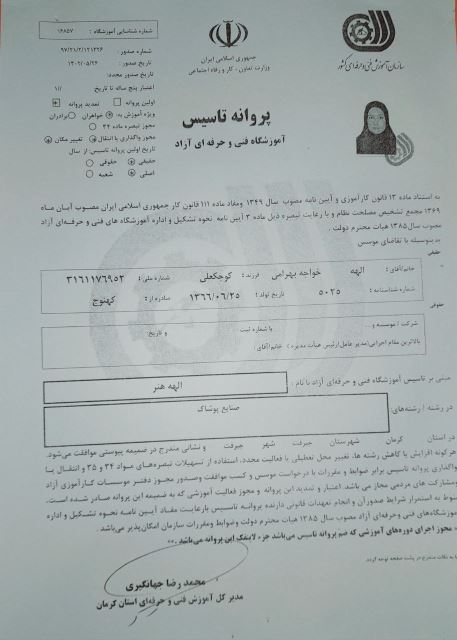 شماره شناسایی آموزشگاه : ۱۶۸۵۷
شماره صدور : ۹۷/۲۱/۲/۱۲۱۳۲۶
تاریخ صدور : ۱۴۰۲/۰۵/۲۶
تاریخ صدور مجدد:
اعتبار پنج ساله تا تاریخ
اولین پروانه تمدید پروانه
ویژه آموزش به: خواهران برادران
مجوز تبصره ماده ۳۴
مجوز واگذاری یا انتقال تغییر مکان
تاریخ اولین پروانه تاسیس: از سال
حقیقی حقوقی
اصلی شعبه
جمهوری اسلامی ایران
وزارت تعاون ، کار و رفاه اجتماعی
سازمان آموزش فنی و حرفه ای کشور
پروانه تاسیس
آموزشگاه فنی و حرفه ای آزاد
به استناد ماده ۱۳ قانون کارآموزی و آیین نامه مصوب سال ۱۳۴۹ ومفاد ماده ۱۱۱ قانون کار جمهوری اسلامی ایران مصوب آبان ماه
۱۳۶۹ مجمع تشخیص مصلحت نظام و با رعایت تبصره ذیل ماده ۲ آیین نامه نحوه تشکیل و اداره آموزشگاه های فنی و حرفه‌ای آزاد
مصوب سال ۱۳۸۵ هیات محترم دولت .
بدینوسیله با تقاضای موسس
حقیقی
خانم/آقای : الهه خواجه بهرامی فرزند : کوچکعلی شماره ملی : ۳۱۶۱۱۷۶۹۵۲
شماره شناسنامه : ۵۰۲۵ تاریخ تولد : ۱۳۶۶/۰۶/۲۵ صادره از : کهنوج
حقوقی
شرکت / موسسه و... با شماره ثبت و تاریخ:
بالاترین مقام اجرایی(مدیر عامل/رئیس هیأت مدیره) خانم/آقای
مبنی بر تاسیس آموزشگاه فنی و حرفه‌ای آزاد با نام : الهه هنر
در رشته / رشته‌های: صنایع پوشاک
در استان کرمان شهرستان جیرفت شهر جیرفت و نشانی مندرج در ضمیمه پیوستی موافقت می‌شود.
هرگونه افزایش یا کاهش رشته ها، تغییر محل تعطیلی یا فعالیت مجدد، استفاده از تسهیلات تبصره‌های مواد ۳۴ و ۳۵ و انتقال یا
واگذاری پروانه تاسیس برابر ضوابط و مقررات با درخواست موسس و کسب موافقت وصدور مجوز دفتر موسسات کارآموزی آزاد
ومشارکت های مردمی مجاز می باشد. اعتبار و تمدید این پروانه و مجوز فعالیت آموزشی که به ضمیمه این پروانه صادر شده است.
منوط به استمرار شرایط صدور آن و انجام تعهدات قانونی دارنده پروانه تاسیس بارعایت مفاد آیین نامه نحوه تشکیل و اداره
آموزشگاه‌های فنی وحرفه‌ای آزاد مصوب سال ۱۳۸۵ هیات محترم دولت وضوابط ومقررات سازمان امکان پذیر می‌باشد .
مجوز اجرای دوره‌های آموزشی که ضم پروانه تاسیس می‌باشد جزء لاینفک این پروانه می‌باشد .
به نکات مندرج در پشت صفحه توجه گردد
محمد رضا جهانگیری
مدیر کل آموزش فنی و حرفه‌ای استان کرمان